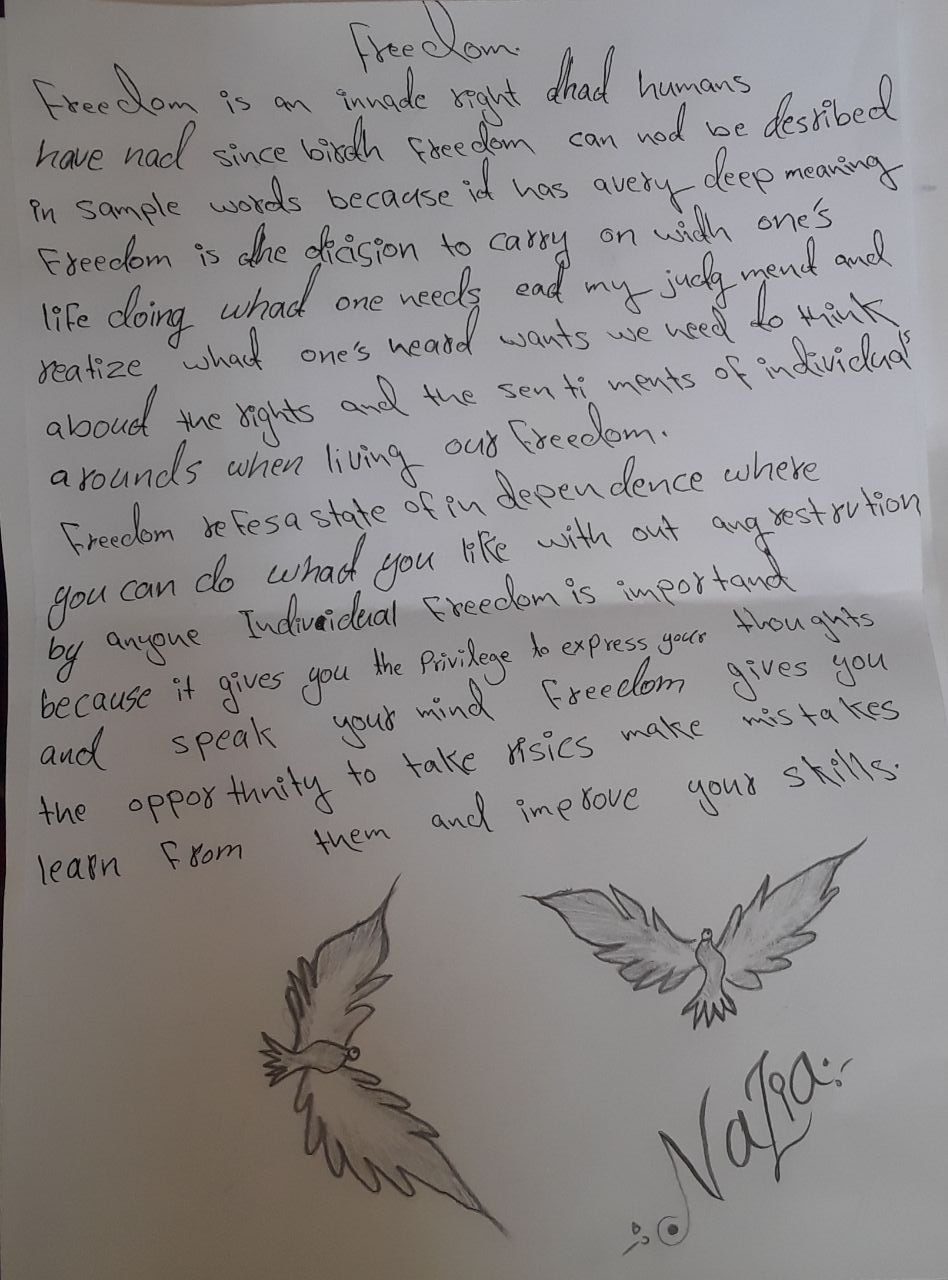 Freedom.
Freedom is an innade right dhad humans
have had since birdh freedom can nod be desribed
in sample words because id has avery deep meaning
Freedom is dhe dicision to carry on widh one's
life doing whad one needs ead my judg mend and
reatize whad one's heard wants we need do think
aboud the rights and the sen ti ments of individual's
arounds when living our freedom.
Freedom refes a state of in depen dence where
you can do whad you like with out ang restrution
by anyone Individual Freedom is importand
because it gives you the Privilege to express your thoughts
and speak your mind freedom gives you
the oppor thnity to take risics make mistakes
learn from them and improve your skills.
Nazia